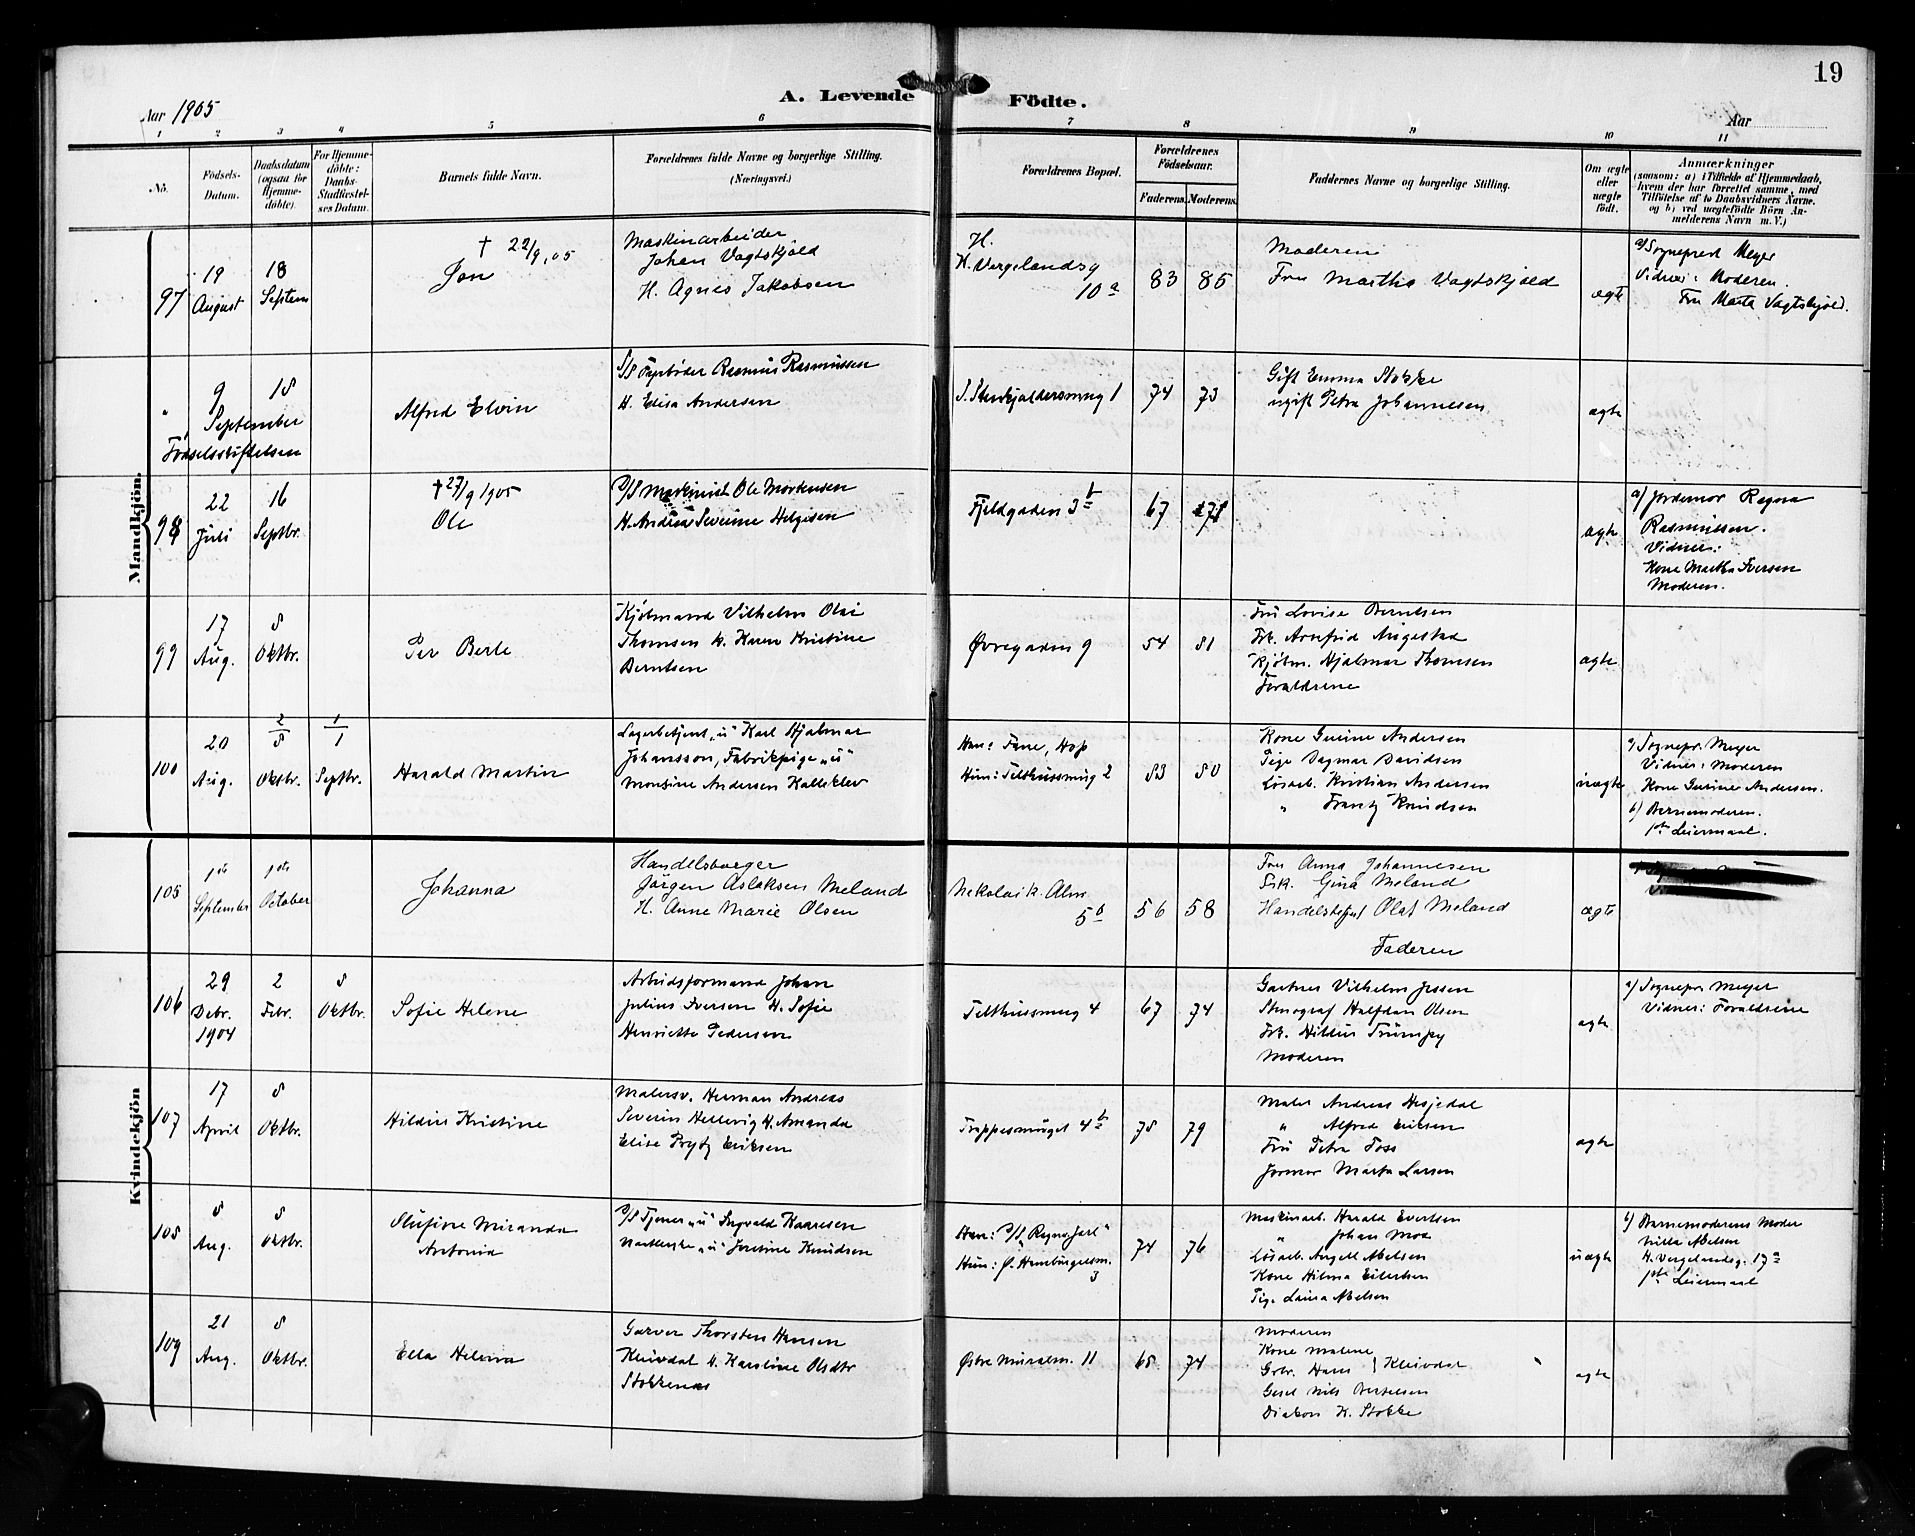 19
Aar 1905
A. Levende Födte.
Aar
1 2 3 4 5 6 7 8 9 10 11
No.
Födsels-Datum.
Daabsdatum (ogsaa for Hjemme-döbte).
For Hjemme-döbte: Daabs-Stadfæstel-ses Datum.
Barnets fulde Navn.
Forældrenes fulde Navne og borgerlige Stilling. (Næringsvei.)
Forældrenes Bopæl.
Forældrenes Födselsaar.
Faderens. Moderens.
Faddernes Navne og borgerlige Stilling.
Om ægte eller uægte födt.
Anmærkninger
(saasom: a) i Tilfælde af Hjemmedaab, hvem der har forrettet samme, med Tilföielse af to Daabsvidners Navne. og b) ved uægtefödte Börn An-melderens Navn m. V.)
Mandkjön.
97
19 August
18 Septem
† 22/9, 05
Jon
Maskinarbeider
Johan Vagtskjöld
H. Agnes Jakobsen
H.
H. Vergelandsg
10 a
83 85
Moderen
Fru Martha Vagtskjöld
ægte
a) Sognepred Meyer
Vidner: Moderen.
Fru Marta Vagtskjöld.
"
9 18
September
Födselsstiftelsen
Alfred Elvin
S/S Fyrböder Rasmus Rasmussen
H. Elisa Andersen
S. Stenkjaldersmug 1
74 73
Gift Emma Stokke
ugift Petra Johannesen
ægte
98
22 Juli
16 Septbr.
† 27/9 1905
Ole
D/S Maskinist Ole Mortensen
H. Andrea Severine Helgesen
Fjeldgaden 3 b
67 71
ægte
a) Jordemor Ragna
Rasmussen.
Vidner:
Kone Martha Iversen
Moderen.
99
17 Aug.
8 Oktbr.
Per Berle
Kjöbmand Vilhelm Olai
Thomsen h. Karen Kristine
Berntsen
Øvregaden 9
54 81
Fru Lovise Berntsen
Frk. Arnfrid Augestad
Kjöbm. Hjalmar Thomsen
Forældrene
ægte
100
20 Aug.
2/8 Oktbr.
1/1 Septbr.
Harald Martin
Lagerbetjent "u" Karl Hjalmar
Johansson, Fabrikpige "u"
Monsine Andersen Kalleklev
Han: Fane, Hop
Hun: Telthussmug 2
83 80
Kone Gurine Andersen
Pige Dagmar Davidsen
Lösarb. Kristian Andersen
" Frantz Knudsen
uægte
a) Sognepr. Meyer
Vidner: Moderen
Kone Gurine Andersen.
b) Barnemoderen.
1ste Leiermaal.
Kvindekjön
105
1ste September
1ste October
Johanna
Handelsborger
Jörgen Aslaksen Meland
H. Anne Marie Olsen
Nikolaik. Alm.
5 b
56 58
Fru Anna Johannesen
Frk. Gina Meland
Handelsbetj Olaf Meland
Faderen
ægte
106
29 Debr. 1904
2 Febr.
8 Oktbr.
Sofie Helene
Arbeidsformand Johan
Julius Iversen H. Sofie
Henriette Pedersen
Telthussmug 4
67 74
Gartner Vilhelm Jessen
Stenograf Halfdan Olsen
Frk. Hildur Trümpy
Moderen
ægte
a) Sognepr. Meyer
Vidner: Forældrene
107
17 April
8 Oktbr.
Hildur Kristine
Malersv. Herman Andreas
Severin Hellevig H. Amanda
Elise Prytz Eriksen
Trappesmuget 4 b
78 79
Maler Andreas Hesjedal
" Alfred Eriksen
Fru Petra Foss
Jormor Marta Larsen
ægte
108
8 Aug.
8 Oktbr.
Miranda
Antonia
D/S Tjener "u" Ingvald Kaaresen
"u" Justine Knudsen
Han: D/S "Ragnv. Jarl"
Hun: Ø. Hamburgersm.
3
74 76
Maskinarb. Harald Evertsen
" Johan Moe
Lösarb. Angell Abelsen
Kone Hilma Eilertsen
Pige Laura Abelsen
uægte
b) Barnemoderens Moder
Milla Abelsen
H. Vergelandsg. 17 a
1ste Leiermaal
109
21 Aug.
8 Oktbr.
Ella Helena
Garver Thorsten Hansen
Kleivdal H. Karoline Olsdtr
Stokkenæs
Østre Muralm. 11
68 74
Moderen
Kone Malene
Grbr. Hans } Kleivdal
Gesel Nils Bertelsen
Diakon K. Stokke
ægte